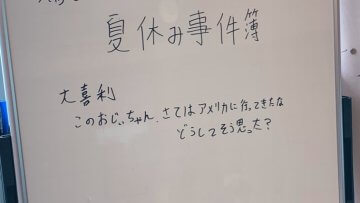 夏休み事件簿
大喜利
このおじいちゃん、さてはアメリカに行ってきたな
どうしてそう思った？